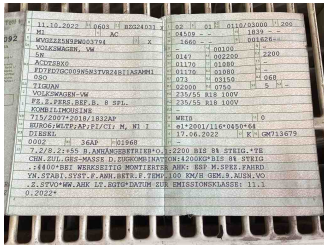 11.10.2022 0603 BZG24031 X
M1 AC
WVGZZZ5N9PW003794 X
VOLKSWAGEN, VW
5N
ACDTSBX0
TIGUAN
VOLKSWAGEN-VW
FZ.Z.PERS.BEF.B. 8 SPL.
KOMBILIMOUSINE
715/2007*2018/1832AP
EURO6;WLTP;AP;PI/CI; M, N1 I
DIESEL
0002 36AP 01968
02 01 0110/03000 200
04509 -- 1839 --
-1660 -
00100 -
0147 002200 2200
01170 01080
01170 01080
073 03150 068
02000 0750 5 -
235/55 R18 100V
235/55 R18 100V
WEIß 0
e1*2001/116*0450*64
17.06.2022 K GM713679
7.2/8.2:+55 B.ANHÄNGEBETRIEB*O.1:2200 BIS 8% STEIG.*TE
CHN.ZUL.GES-MASSE D.ZUGKOMBINATION:4200KG*BIS 8% STEIG
.:4400*BEI WERKSEITIG MONTIERTER AHK: ESP M.SPEZ.FAHRD
YN.STABI.SYST.F.ANH.BETR.F.TEMP.100 KM/H GEM.9.AUSN.VO
.Z.STVO*WW.AHK LT.EGTG*DATUM ZUR EMISSIONSKLASSE: 11.1
0.2022*